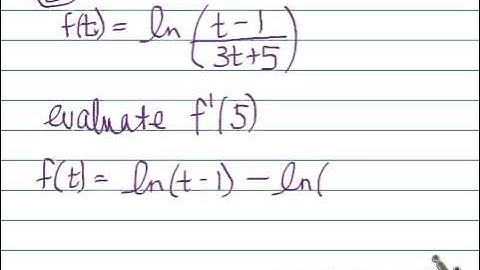 f(t) = ln (t-1 / 3t+5)
evaluate f'(5)
f(t) = ln(t-1) - ln(